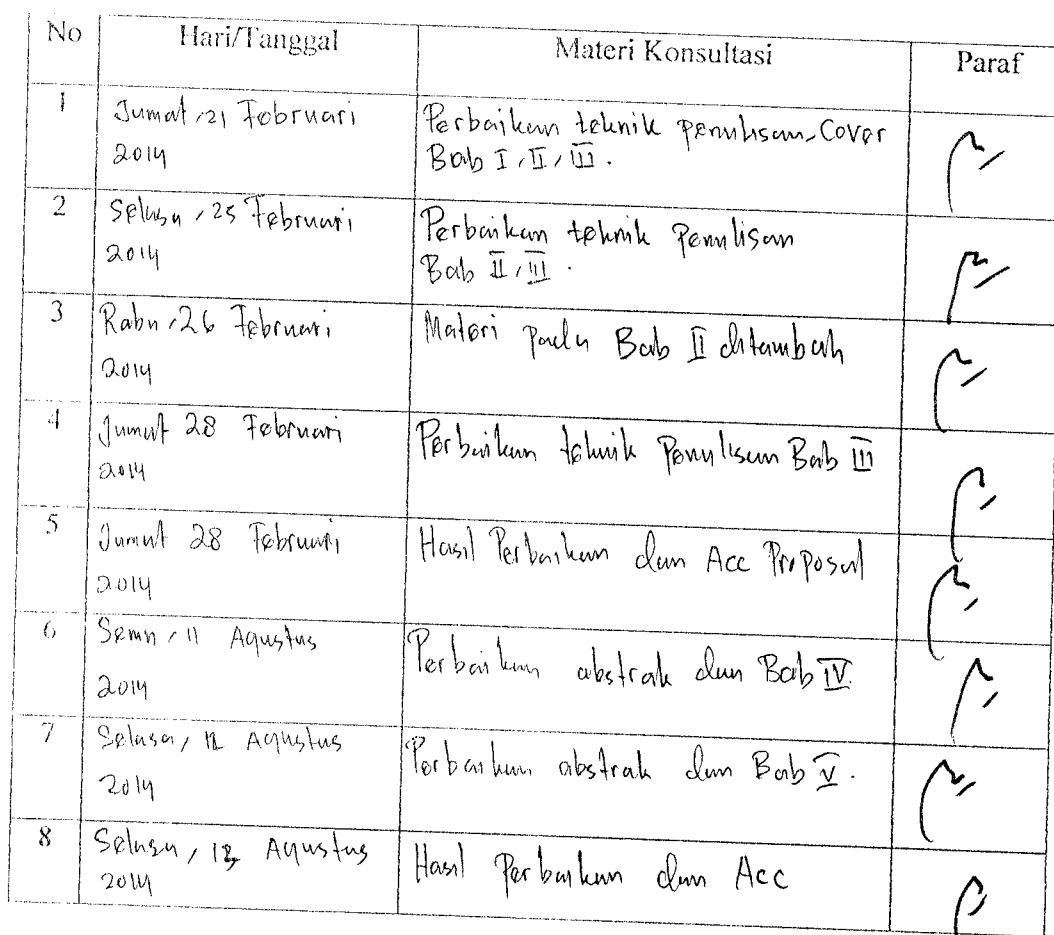 No Hari/Tanggal Materi Konsultasi Paraf
1 Jumat, 21 Februari Perbaikan teknik penulisan, Cover
2014 Bab I, II, III.
2 Selasa, 25 Februari Perbaikan teknik Penulisan
2014 Bab II, III.
3 Rabu, 26 Februari Materi pada Bab II ditambah
2014
4 Jumat 28 Februari Perbaikan teknik Penulisan Bab III
2014
5 Jumat 28 Februari Hasil Perbaikan dan Acc Proposal
2014
6 Senin, 11 Agustus Perbaikan abstrak dan Bab IV.
2014
7 Selasa, 12 Agustus Perbaikan abstrak dan Bab V.
2014
8 Selasa, Agustus Hasil Perbaikan dan Acc
2014